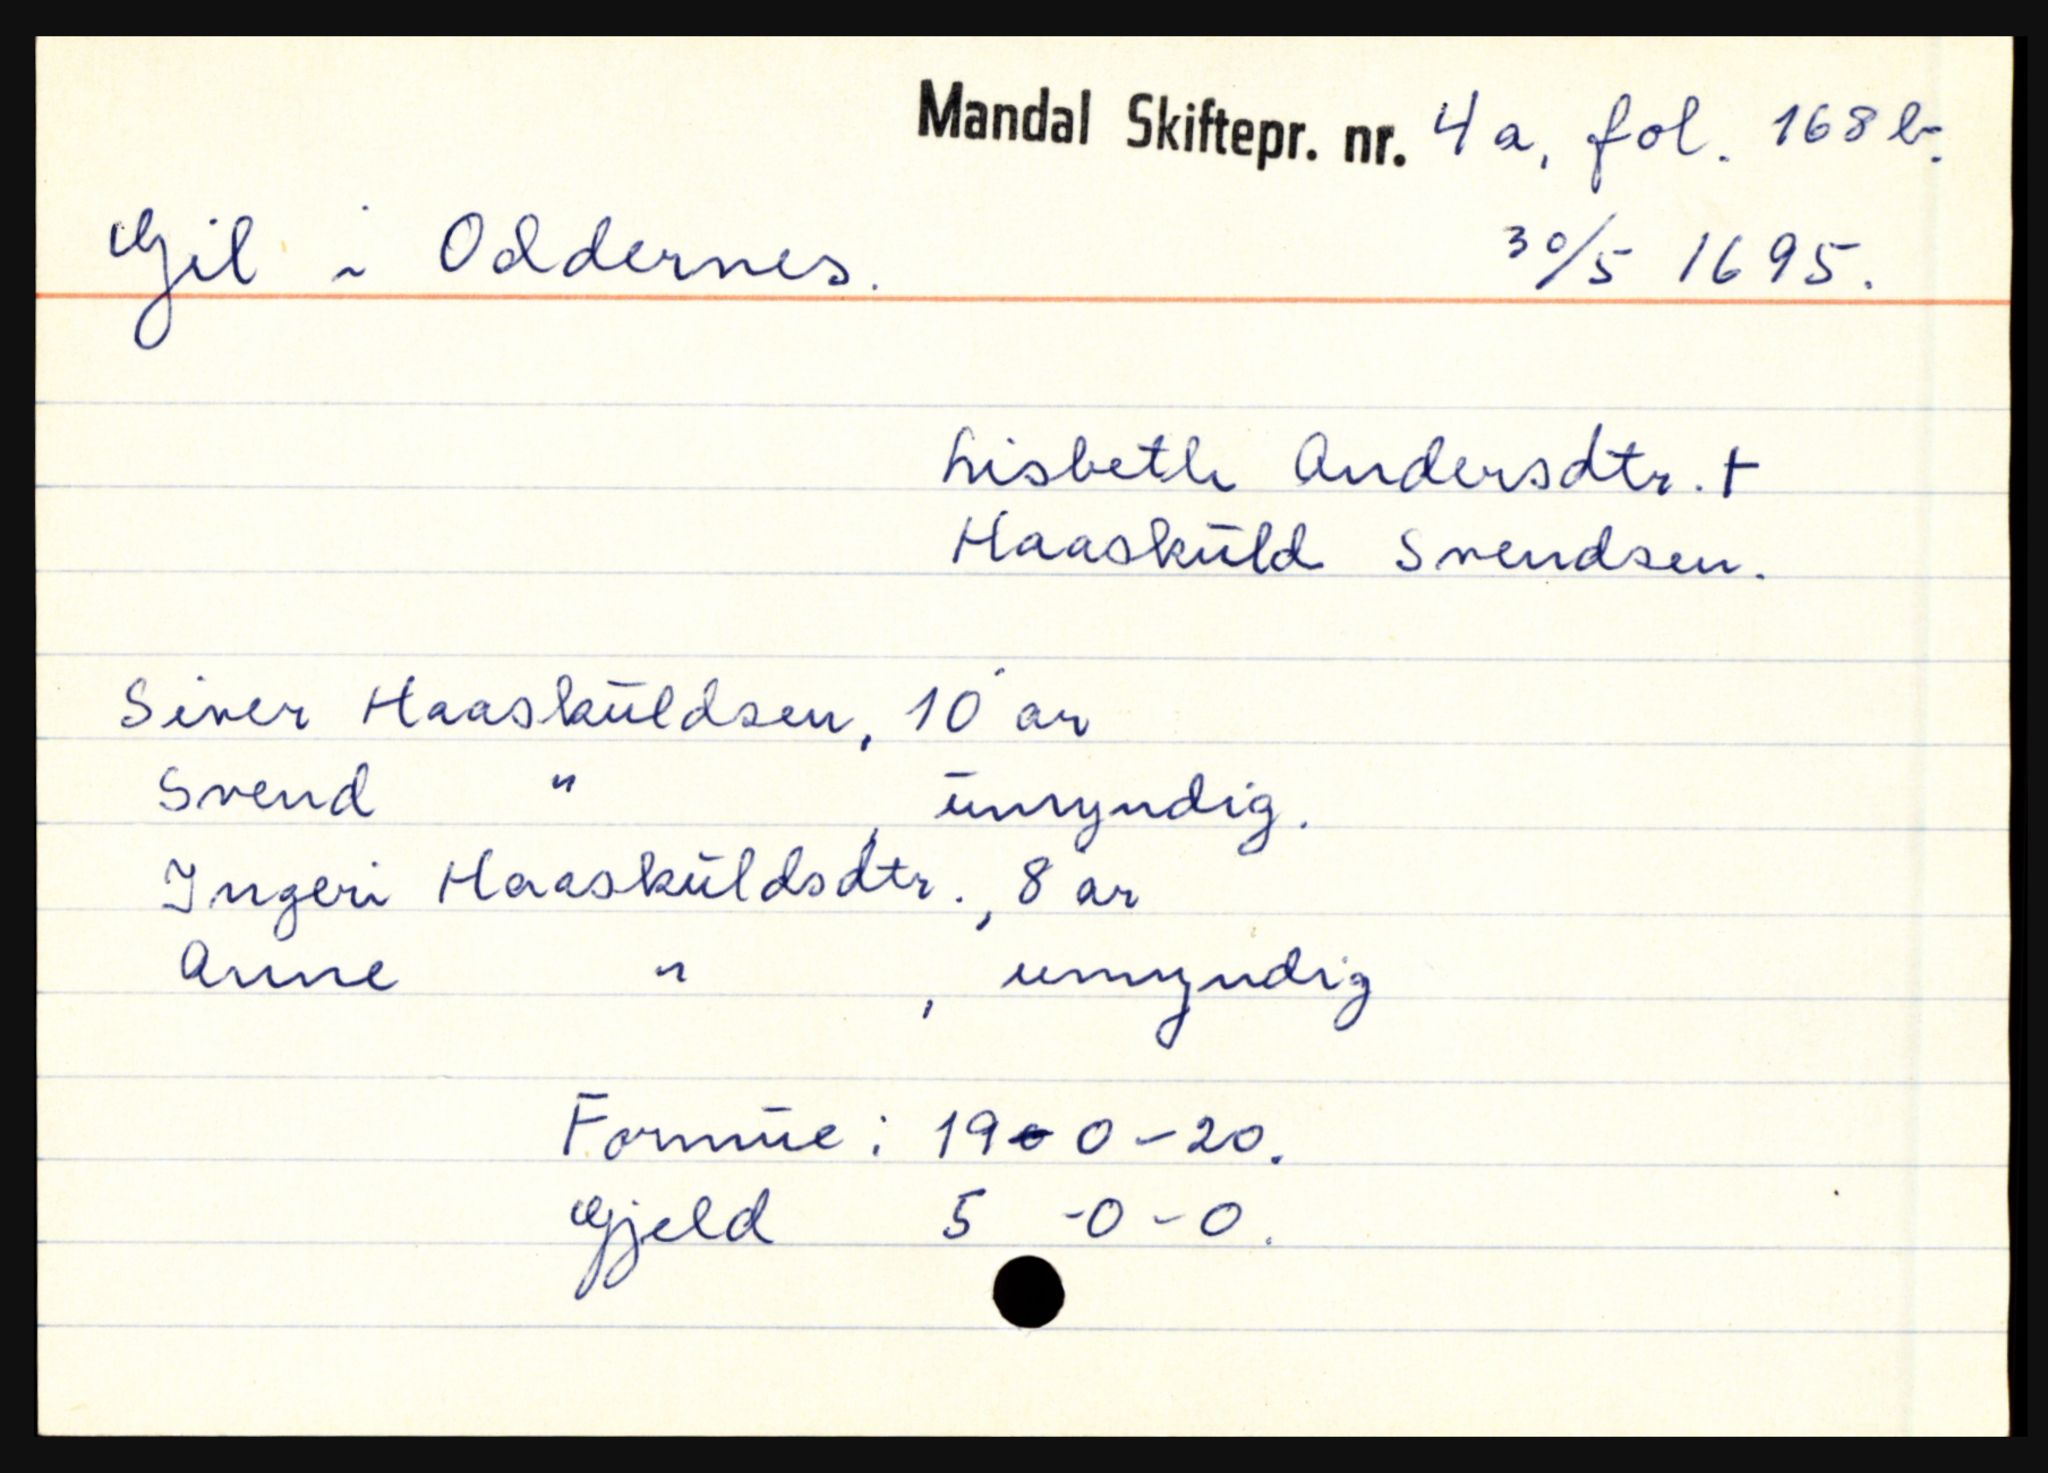 Mandal Skiftepr. nr. 4a, fol. 168b.
Gil i Oddernes. 30/5 1695.
Lisbeth Andersdtr. +
Haaskŭld Svendsen.
Siver Haaskŭldsen, 10 år
Svend " , ŭmyndig.
Ingeri Haaskŭldsdtr., 8 år
Anne " , umyndig
Formŭe: 19-0-20.
Gjeld 5 -0-0.